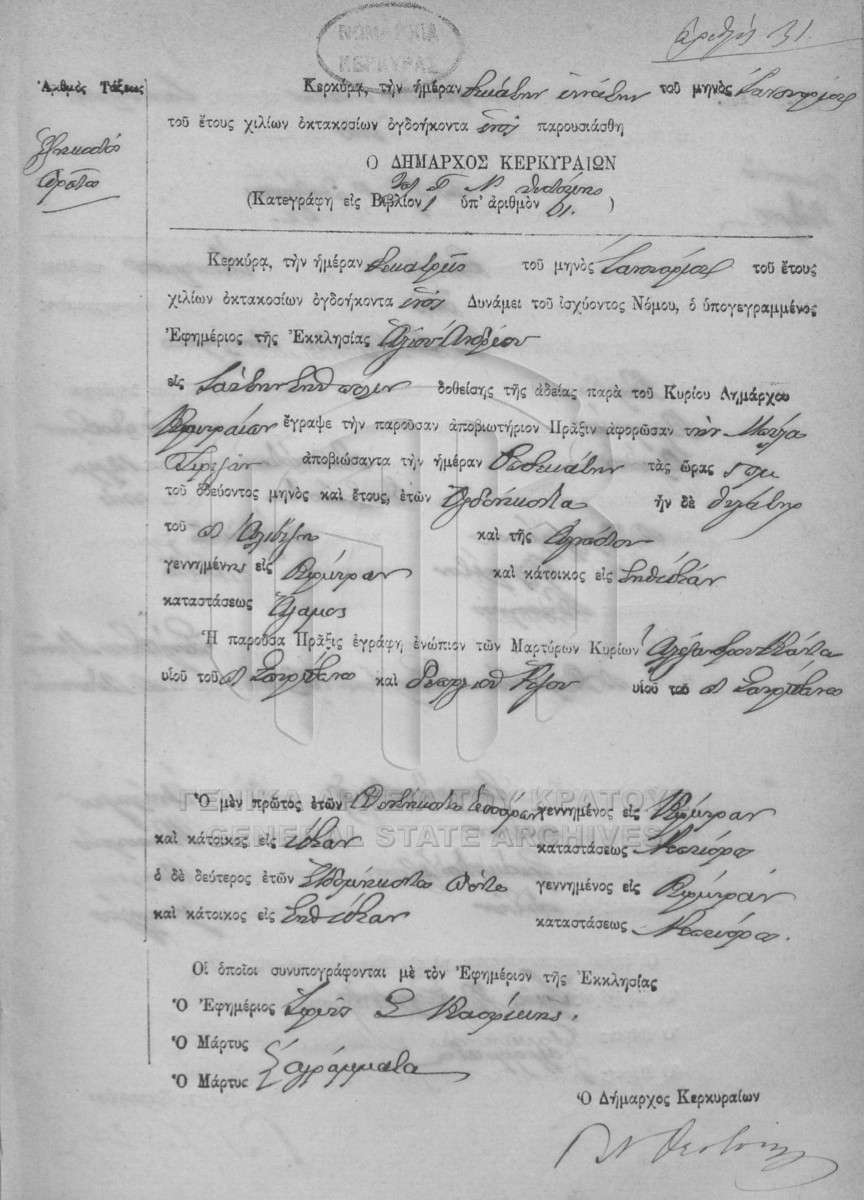 ΝΟΜΑΡΧΙΑ
ΚΕΡΚΥΡΑΣ
ἀριθ. 31.
Ἀριθμὸς Τάξεως
Κερκύρᾳ, τὴν ἡμέραν δεκάτην ἐννάτην τοῦ μηνὸς Ἰανουαρίου
τοῦ ἔτους χιλίων ὀκτακοσίων ὀγδοήκοντα ἑπτά παρουσιάσθη
Ἑξηκοστὸς
πρῶτος
Ο ΔΗΜΑΡΧΟΣ ΚΕΡΚΥΡΑΙΩΝ
Ν Θεοτόκης
(Κατεγράφη εἰς Βιβλίον 1 ὑπ' ἀριθμὸν 61.)
Κερκύρᾳ, τὴν ἡμέραν δεκατρεῖς τοῦ μηνὸς Ἰανουαρίου τοῦ ἔτους
χιλίων ὀκτακοσίων ὀγδοήκοντα ἑπτά Δυνάμει τοῦ ἰσχύοντος Νόμου, ὁ ὑπογεγραμμένος
Ἐφημέριος τῆς Ἐκκλησίας Ἁγίου Ἀνδρέου
εἰς ταύτην τὴν πόλιν δοθείσης τῆς ἀδείας παρὰ τοῦ Κυρίου Δημάρχου
Κερκυραίων ἔγραψε τὴν παροῦσαν ἀποβιωτήριον Πρᾶξιν ἀφορῶσαν τὴν
ἀποβιώσαντα τὴν ἡμέραν δωδεκάτην τὰς ὥρας 5 πμ
τοῦ ὁδεύοντος μηνὸς καὶ ἔτους, ἐτῶν ὀγδοήκοντα ἦν δὲ θυγάτηρ
τοῦ καὶ τῆς
γεννημένης εἰς Κέρκυραν καὶ κάτοικος εἰς τὴν ἰδίαν
καταστάσεως ἄγαμος
Ἡ παροῦσα Πρᾶξις ἐγράφη ἐνώπιον τῶν Μαρτύρων Κυρίων Ἀλεξάνδρου
υἱοῦ τοῦ π Σπυρίδωνος καὶ υἱοῦ τοῦ π Σπυρίδωνος
Ὁ μὲν πρῶτος ἐτῶν πεντήκοντα τεσσάρων γεννημένος εἰς Κέρκυραν
καὶ κάτοικος εἰς ἰδίαν καταστάσεως
ὁ δὲ δεύτερος ἐτῶν ἑβδομήκοντα πέντε γεννημένος εἰς Κέρκυραν
καὶ κάτοικος εἰς τὴν ἰδίαν καταστάσεως
ΓΕΝΙΚΑ ΑΡΧΕΙΑ ΤΟΥ ΚΡΑΤΟΥΣ
GENERAL STATE ARCHIVES
Οἱ ὁποῖοι συνυπογράφονται μὲ τὸν Ἐφημέριον τῆς Ἐκκλησίας
Ὁ Ἐφημέριος Ἱερεὺς Σ
Ὁ Μάρτυς
Ὁ Μάρτυς ἀγράμματοι
Ὁ Δήμαρχος Κερκυραίων
Ν Θεοτόκης